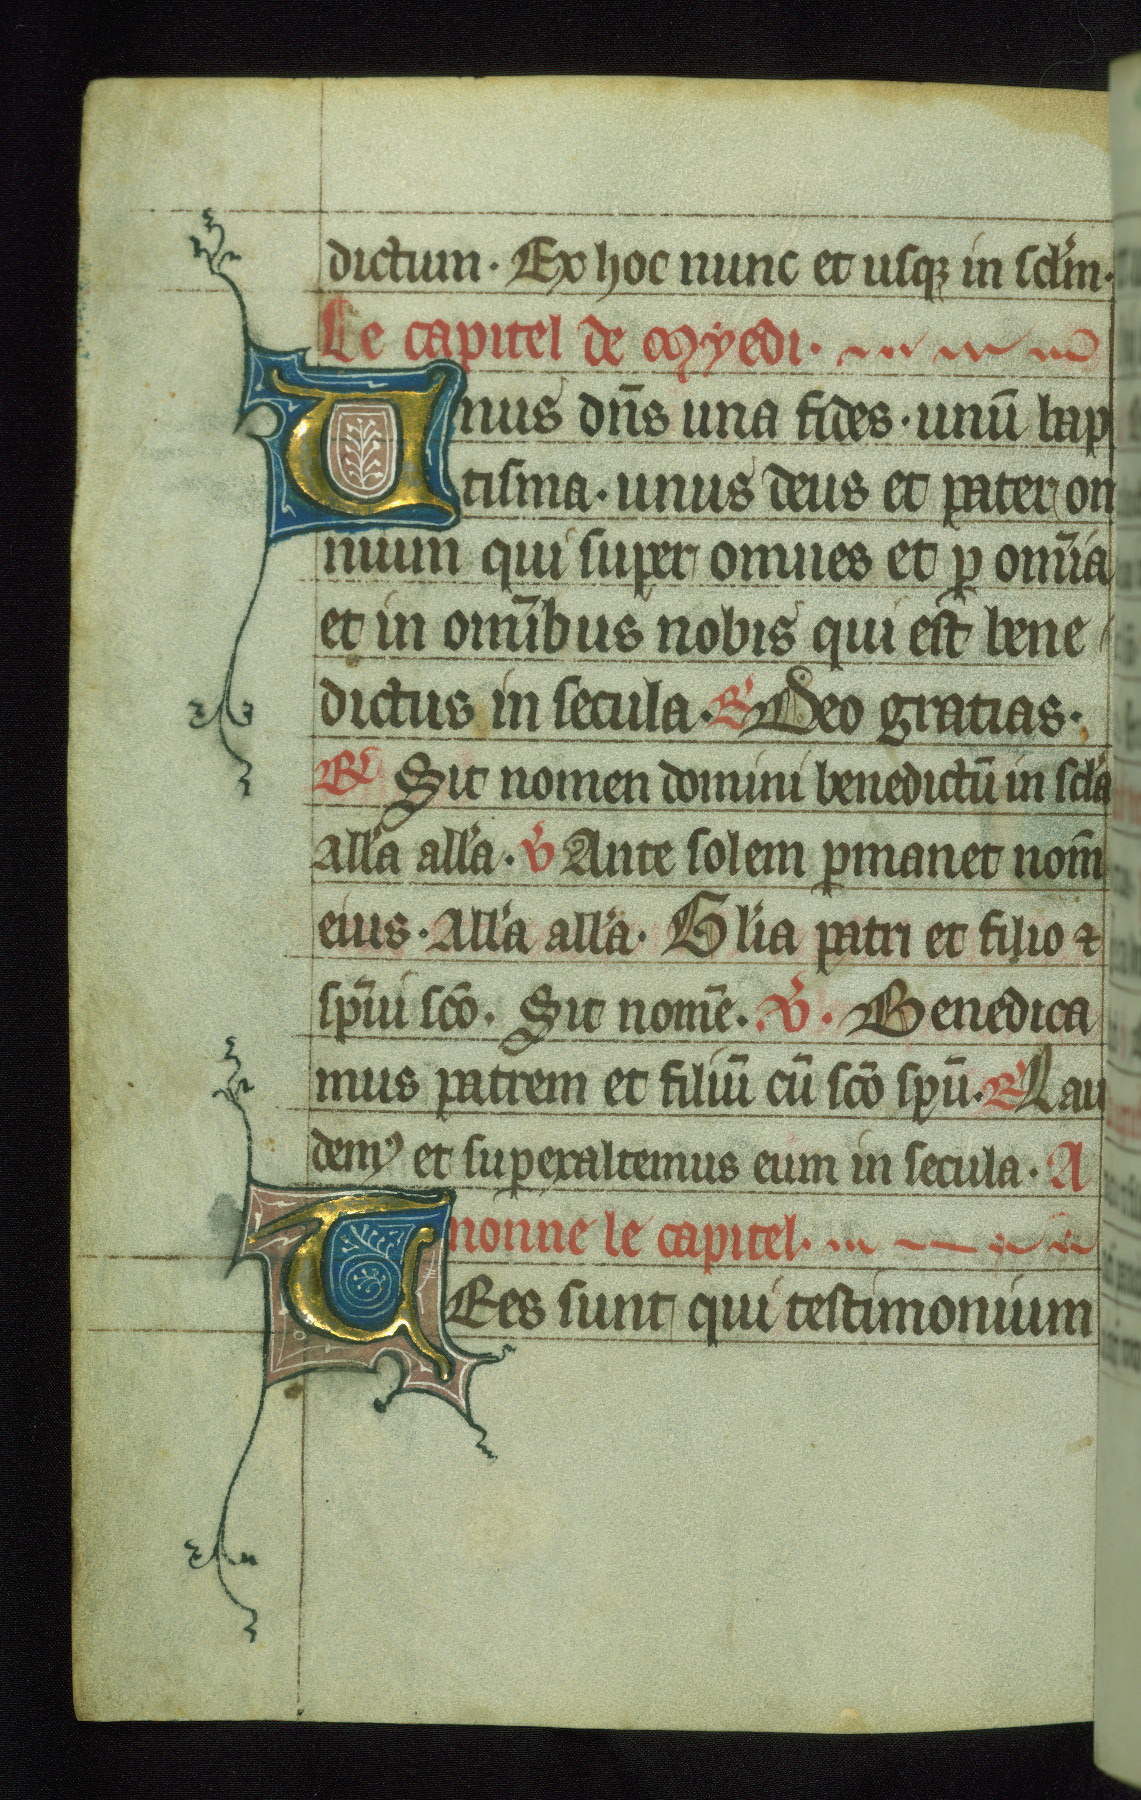 dictum. Ex hoc nunc et usq in sclm.
Le capitel de Myedi.
Unus dn̄s una fides. unū bap
tisma. unus deus et pater om
nium qui super omnes et p om̄ia
et in om̄ibus nobis qui est bene
dictus in secula. R Deo gratias.
R Sit nomen domini benedictū in scl̄a
all'a all'a. V Ante solem pmanet nom̄
eius. All'a all'a. Gl'ia patri et filio ⁊
sp̄iui scō. Sit nom̄e. V. Benedica
mus patrem et filiū cū scō spū. R Lau
demꝰ et superaltemus eum in secula. A
nonne le capitel.
TRes sunt qui testimonium